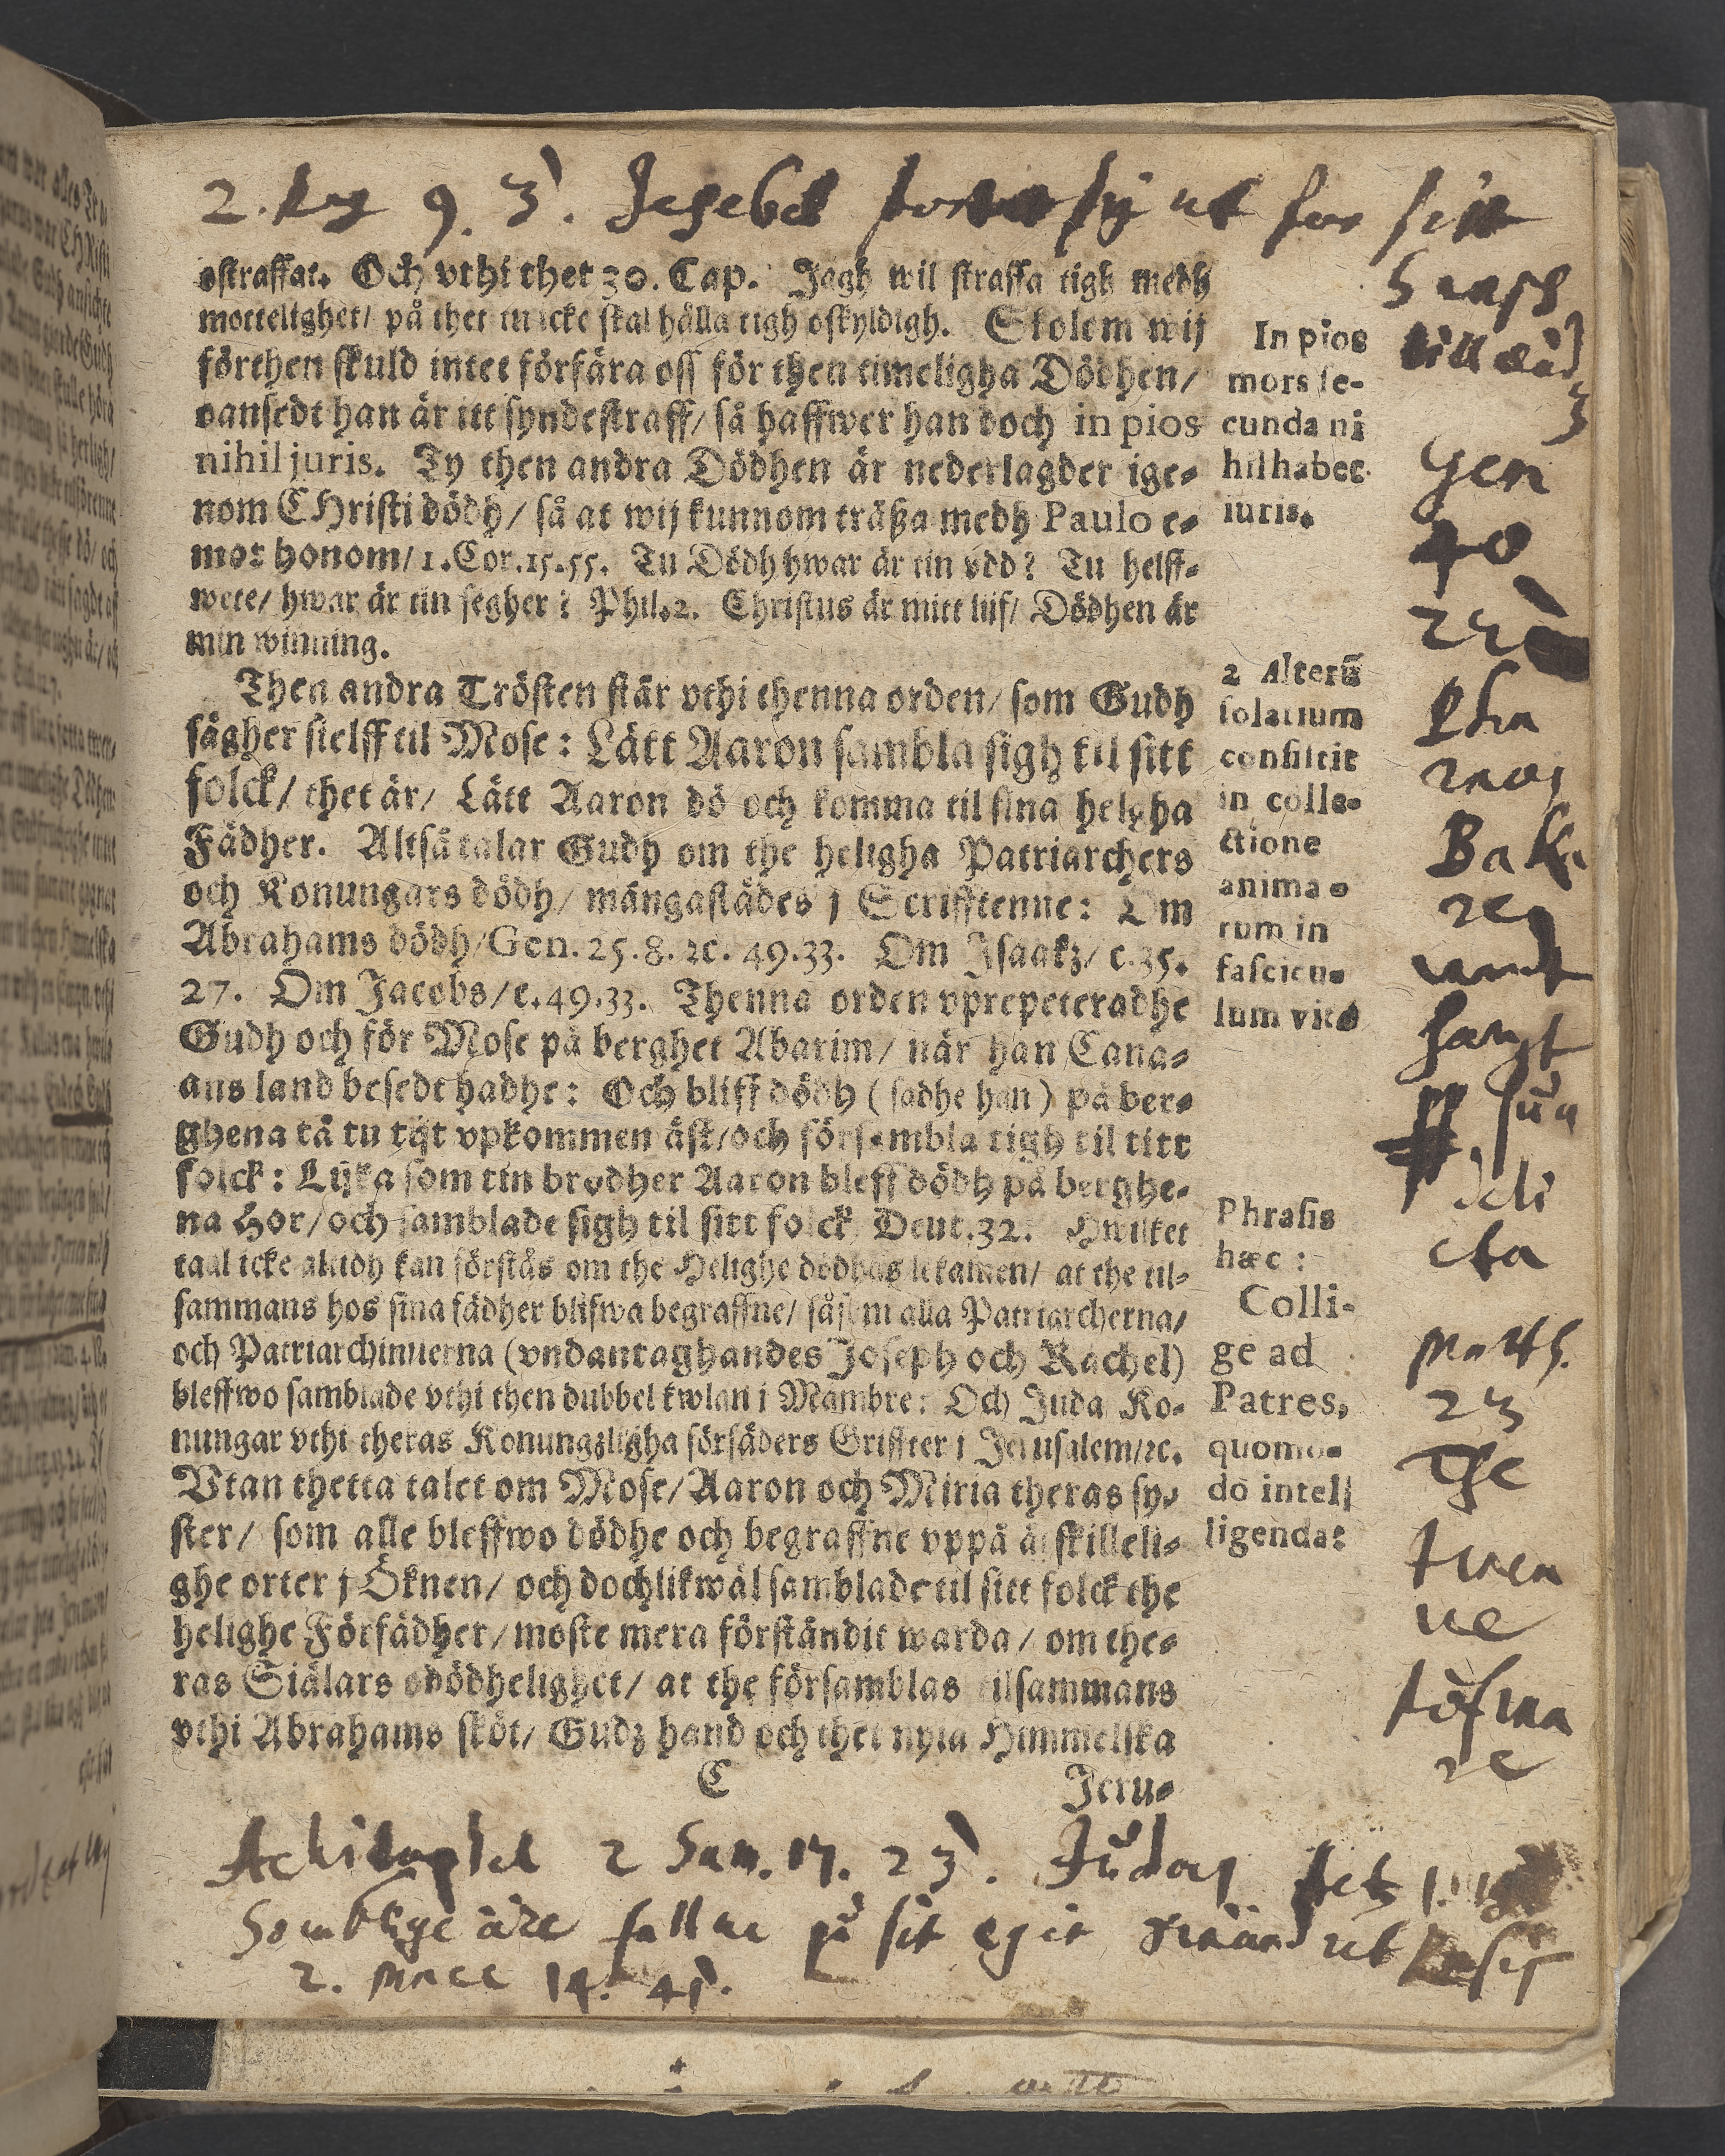 2. Reg 9. 3. Jesebel
ostraffat. Och vthi thet 30. Cap. Jagh wil straffa tigh medh
mottelighet/ på thet tu icke skal hålla tigh oskyldigh. Skolem wij
förthen skuld intet förfära oss för then timeligha Dödhen/
oansedt han är itt syndestraff/ så haffwer han doch in pios
nihil juris. Ty then andra Dödhen är nederlagder ige-
nom CHristi dödh/ så at wij kunnom träßa medh Paulo e-
mot honom/ 1. Cor. 15. 55. Tu Dödh hwar är tin vdd? Tu helff-
wete/ hwar är tin segher? Phil. 2. Christus är mitt liif/ Dödhen är
min winning.
Then andra Trösten står vthi thenna orden/ som Gudh
sägher sielff til Mose: Lätt Aaron sambla sigh til sitt
folck/ thet är/ Lätt Aaron dö och komma til sina helgha
Fädher. Altså talar Gudh om the heligha Patriarchers
och Konungars dödh/ mångastädes j Scrifftenne: Om
Abrahams dödh/ Gen. 25. 8. ꝛc. 49. 33. Om Isaakz/ c. 35.
27. Om Jacobs/ c. 49. 33. Thenna orden vprepeteradhe
Gudh och för Mose på berghet Abarim/ när han Cana-
ans land besedt hadhe: Och bliff dödh (sadhe han) på ber-
ghena tå tu tijt vpkommen äst/ och försambla tigh til titt
folck: Lijka som tin brodher Aaron bleff dödh på berghe-
na Hor/ och samblade sigh til sitt folck Deut. 32. Hwilket
taal icke altidh kan förstås om the Helighe dödhas lekamen/ at the til-
sammans hos sina fädher blifwa begraffne/ såsom alla Patriarcherna/
och Patriarchinnerna (vndantaghandes Joseph och Rachel)
bleffwo samblade vthi then dubbel kwlan i Mambre: Och Juda Ko-
nungar vthi theras Konungzligha förfäders Griffter i Jerusalem/ ꝛc.
Vtan thetta talet om Mose/ Aaron och Miria theras sy-
ster/ som alle bleffwo dödhe och begraffne vppå åtskilleli-
ghe orter j Öknen/ och dochlikwäl samblade til sitt folck the
helighe Förfädher/ moste mera förståndit warda/ om the-
ras Siälars odödhelighet/ at the församblas tilsammans
vthi Abrahams sköt/ Gudz hand och thet nyia Himmelska
C
Jeru-
In pios
mors se-
cunda ni
hil habet
iuris.
2 Alterū
solatium
consistit
in colle-
ctione
anima-
rum in
fascicu-
lum vitæ
Phrasis
hæc:
Colli-
ge ad
Patres,
quomo-
do intel-
ligenda:
Gen
40
Pha
raos
Baka
re
deli
cta
Math.
23
The
Achitophel 2 Sam. 17. 23. Judas
Somblige äre fallne på sit egit
2. Macc 14. 41.